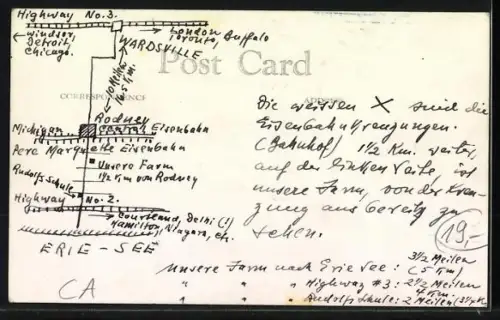 Highway No. 3.
← Windsor, Detroit, Chicago.
→ London Toronto, Buffalo
WARDSVILLE
← 10 Meilen →
16.5 Km.
Post Card
CORRESPONDENCE
ADDRESS
Rodney
Michigan Central Eisenbahn
Pere Marquette Eisenbahn
Unsere Farm
1½ Km von Rodney
Rudolfs Schule
Highway No. 2.
→ Courtland, Delhi (!)
Hamilton, Niagara, etc.
ERIE - SEE
CA
Die weissen X sind die
Eisenbahnkreuzungen.
(Bahnhof) 1½ Km. weiter,
auf der linken Seite, ist
unsere Farm, von der Kreu-
zung aus bereits zu
sehen.
19,-
Unsere Farm nach Erie See: 3½ Meilen
(5 Km)
" " " Highway #3: 2½ Meilen
4 Km.
" " " Rudolfs Schule: 2 Meilen